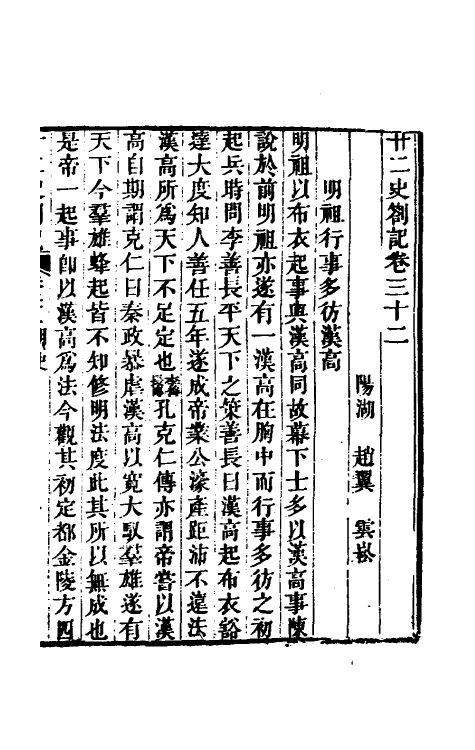 廿二史劄記卷三十二
陽湖 趙翼 雲崧
明祖行事多彷漢高
明祖以布衣起事與漢高同故幕下士多以漢高事陳
說於前明祖亦遂有一漢高在胸中而行事多彷之初
起兵時問李善長平天下之策善長曰漢高起布衣豁
達大度知人善任五年遂成帝業公濠產距沛不遠法
漢高所爲天下不足定也李善長傳孔克仁傳亦謂帝嘗以漢
高自期謂克仁曰秦政暴虐漢高以寬大馭羣雄遂有
天下今羣雄蜂起皆不知修明法度此其所以無成也
是帝一起事卽以漢高爲法今觀其初定都金陵方四